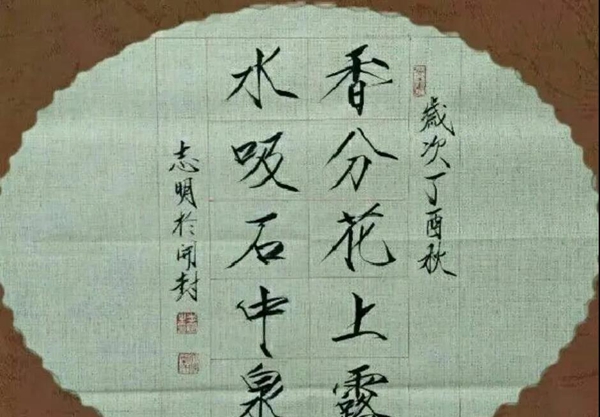 歲次丁酉秋
香分花上露
水吸石中泉
志明於開封